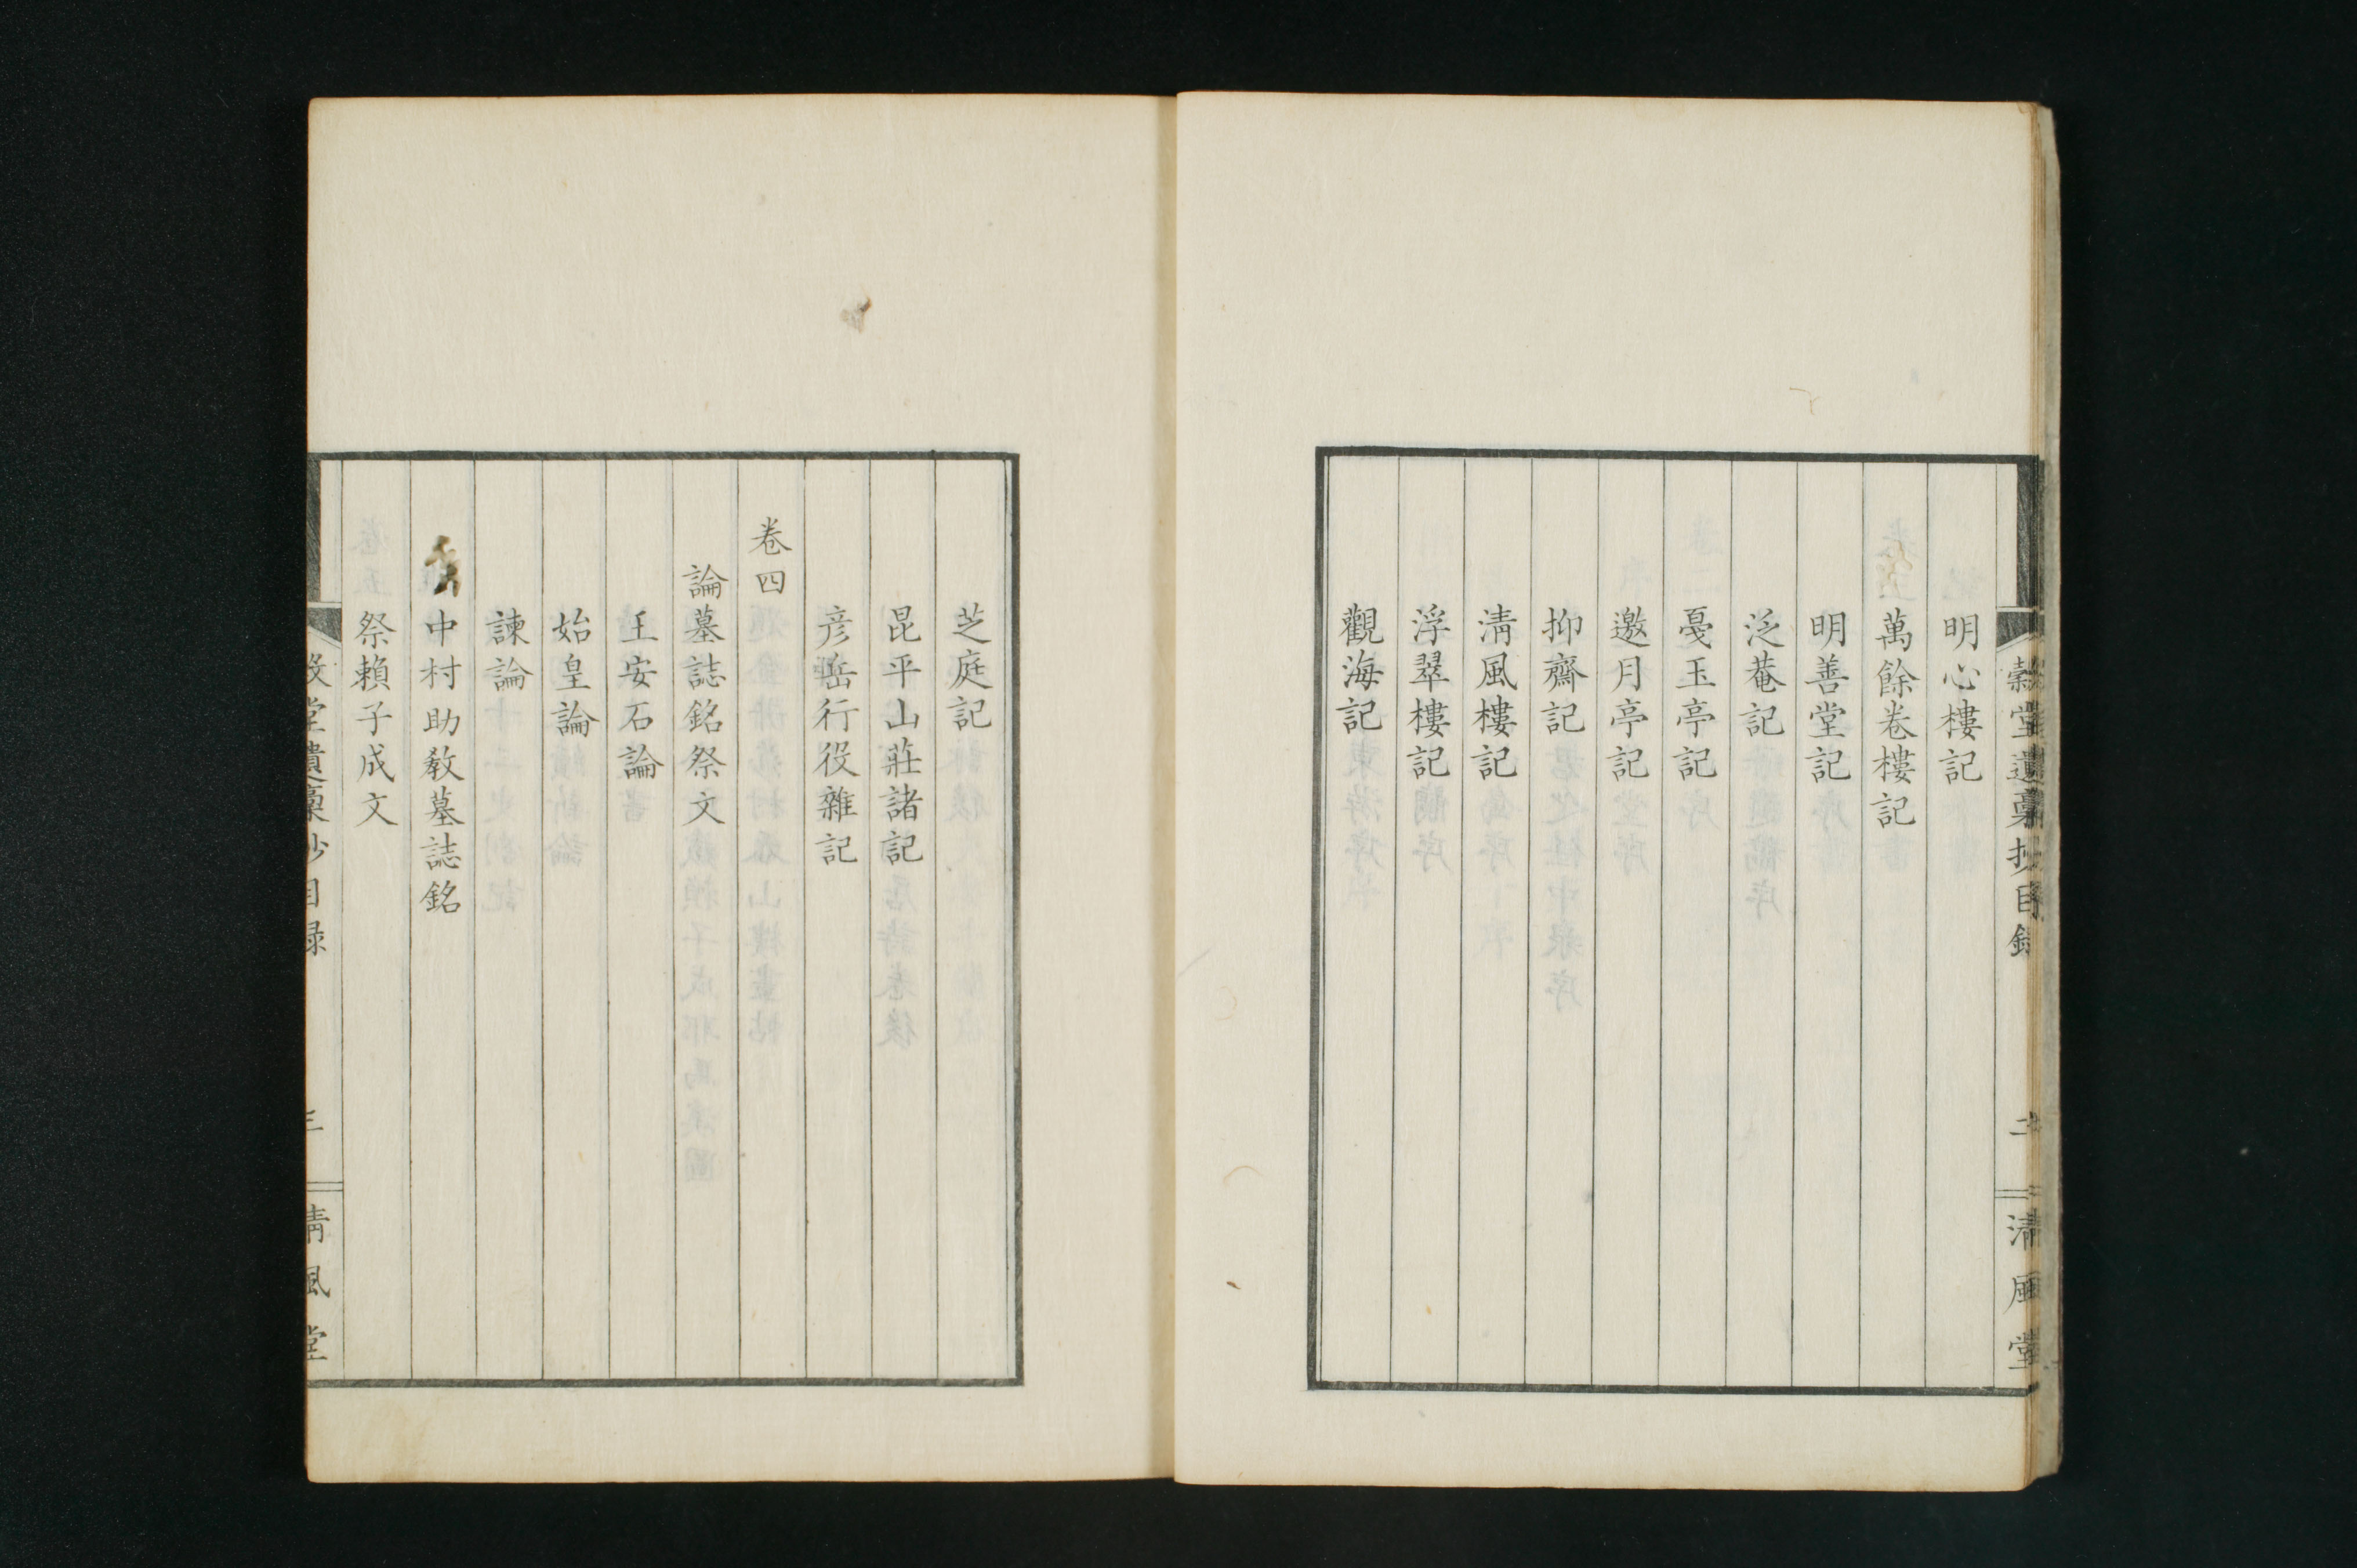 穀堂遺稾抄目錄
二
清風堂
明心樓記
萬餘卷樓記
明善堂記
泛菴記
戞玉亭記
邀月亭記
抑齋記
清風樓記
浮翠樓記
觀海記
芝庭記
昆平山莊諸記
彦岳行役雜記
卷四
論墓誌銘祭文
王安石論
始皇論
諫論
中村助敎墓誌銘
祭賴子成文
堂遺稾抄目錄
三
清風堂